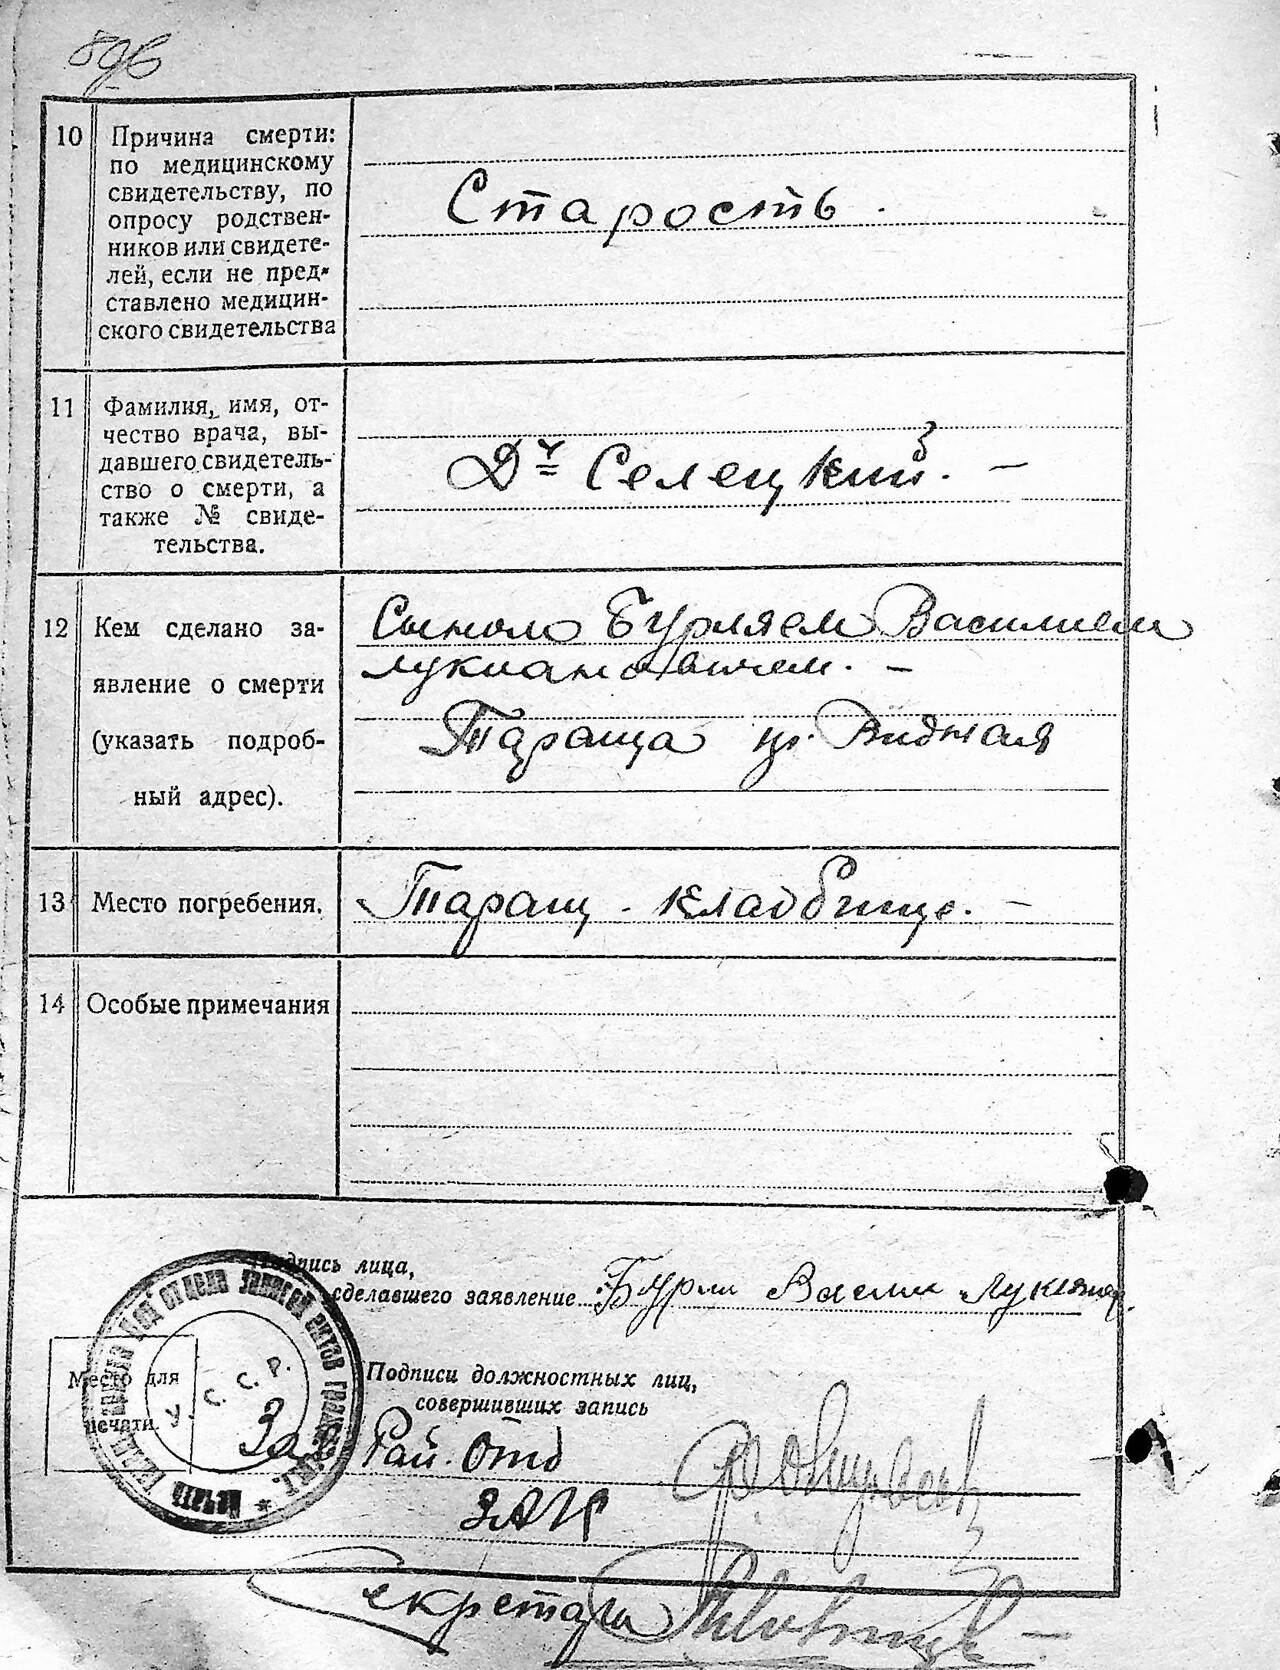 10 Причина смерти:
по медицинскому
свидетельству, по
опросу родствен-
ников или свидете-
лей, если не пред-
ставлено медицин-
ского свидетельства
Старость.
11 Фамилия, имя, от-
чество врача, вы-
давшего свидетель-
ство о смерти, а
также № свиде-
тельства.
Дч Селецкий. —
12 Кем сделано за-
явление о смерти
(указать подроб-
ный адрес).
Сыном Бурляем Василием
Лукиановичем. —
Тараща ул. Видная
13 Место погребения.
Таращ. кладбище. —
14 Особые примечания
Подпись лица,
сделавшего заявление Бурли Васили Лукянов
Место для
печати.
У. С. С. Р.
Печать
отдела записей актов граждан.
Подписи должностных лиц,
совершивших запись
Зав. Рай. Отд
ЗАГС
Секретарь